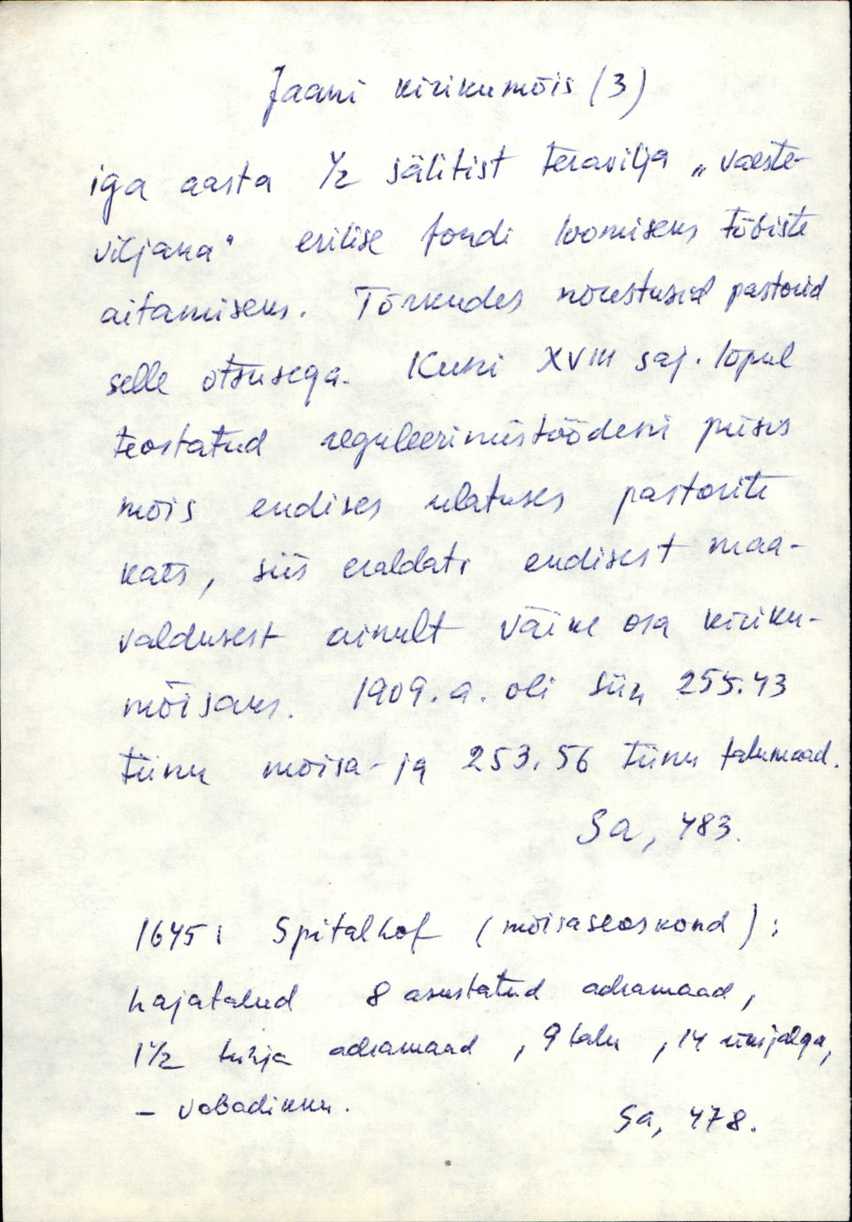 Jaani kirikumõis (3)
iga aasta 1/2 sälitist teravilja „vaeste-
viljana" erilise fondi loomiseks tõbiste
aitamiseks. Tõrkudes nõustusid pastorid
selle otsusega. Kuni XVIII saj. lõpul
teostatud reguleerimistöödeni püsis
mõis endises ulatuses pastorite
käes, siis eraldati endisest maa-
valdusest ainult väike osa kiriku-
mõisaks. 1909. a. oli siin 255.43
tiinu mõisa- ja 253.56 tiinu talumaad.
Sa, 483.
1645: Spitalhof (mõisaseoskond):
hajatalud 8 asustatud adramaad,
1 1/2 tühja adramaad, 9 talu, 14 üksjalga,
- vabadikku.
Sa, 478.